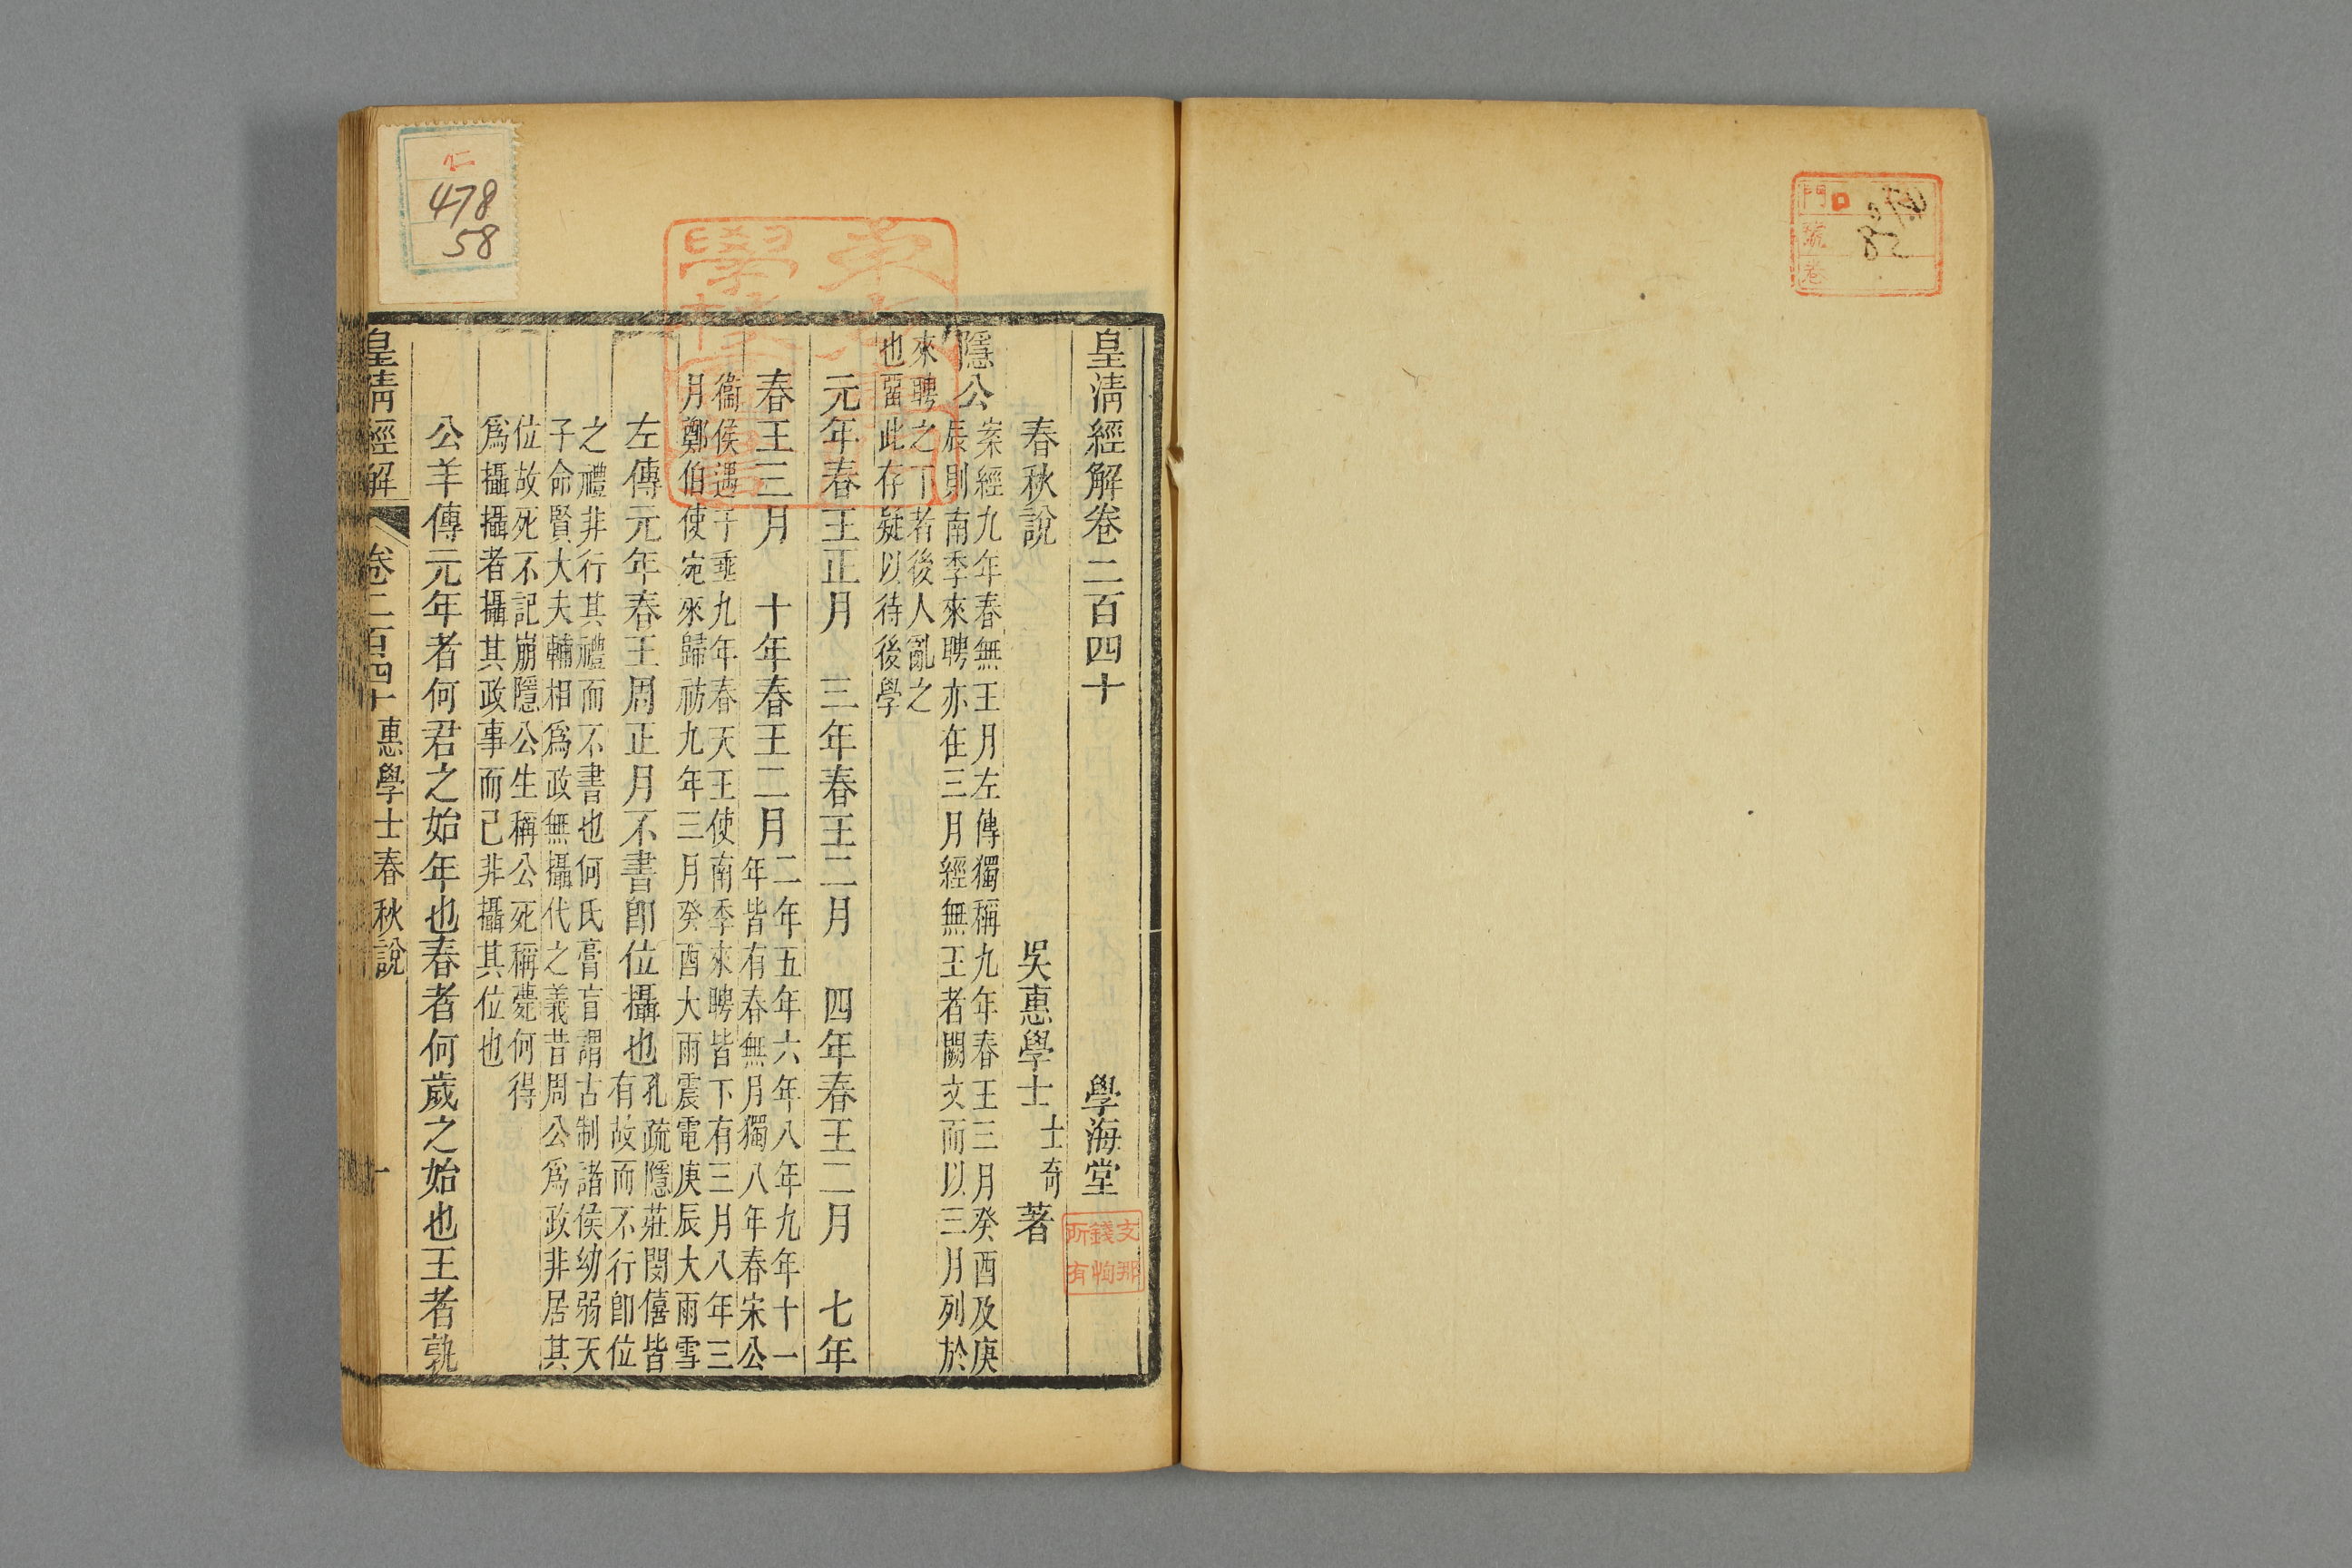 皇清經解卷二百四十 學海堂
春秋說 吳惠學士士奇著
隱公案經九年春無王月左傳獨稱九年春王三月癸酉及庚
辰則南季來聘亦在三月經無王者闕文而以三月列於
來聘之下者後人亂之
也畱此存疑以待後學
元年春王正月 三年春王二月 四年春王二月 七年
春王三月 十年春王二月二年五年六年八年九年十一
年皆有春無月獨八年春宋公
衞侯遇于垂九年春天王使南季來聘皆下有三月八年三
月鄭伯使宛來歸祊九年三月癸酉大雨震電庚辰大雨雪
左傳元年春王周正月不書卽位攝也孔疏隱莊閔僖皆
有故而不行卽位
之禮非行其禮而不書也何氏膏盲謂古制諸侯幼弱天
子命賢大夫輔相爲政無攝代之義昔周公爲政非居其
位故死不記崩隱公生稱公死稱薨何得
爲攝攝者攝其政事而已非攝其位也
公羊傳元年者何君之始年也春者何歲之始也王者孰
皇淸經解 卷二百四十 惠學士春秋說 一
478
58
支那
錢恂
所有
門 口
號 82
卷